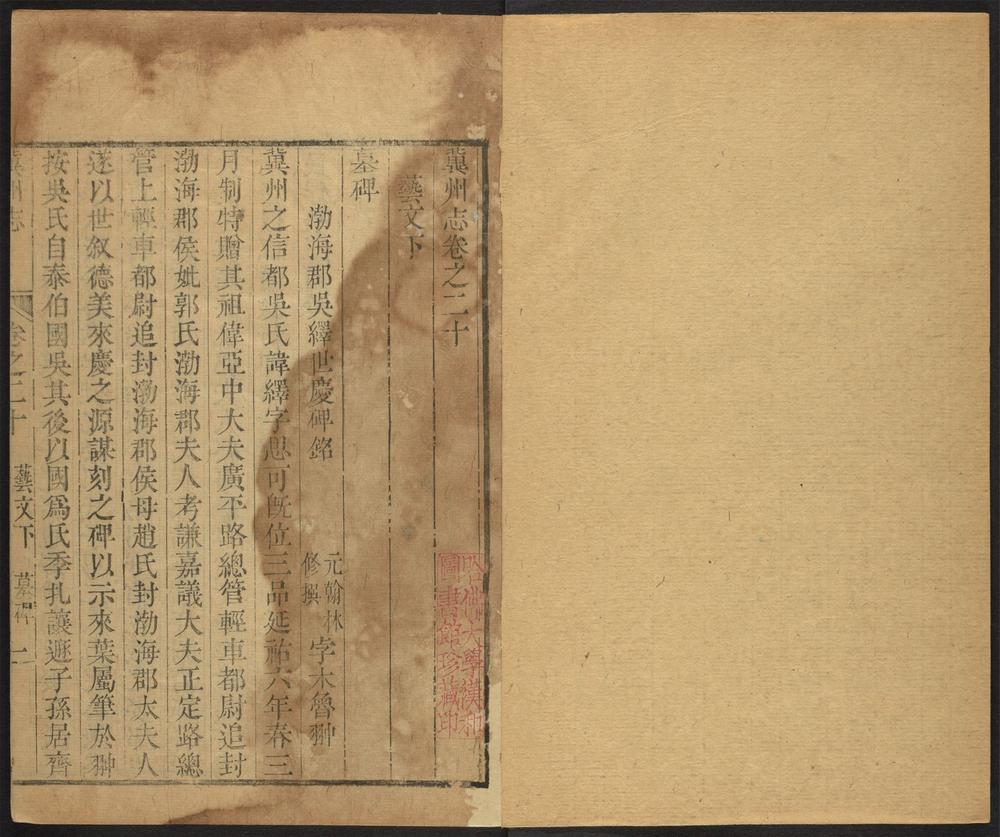 冀州志卷之二十
藝文下
墓碑
渤海郡吳繹世慶碑銘 元翰林修撰 孛术魯翀
冀州之信都吳氏諱繹字思可旣位三品延祐六年春三
月制特贈其祖偉亞中大夫廣平路總管輕車都尉追封
渤海郡侯妣郭氏渤海郡夫人考謙嘉議大夫正定路總
管上輕車都尉追封渤海郡侯母趙氏封渤海郡太夫人
遂以世叙德美來慶之源謀刻之碑以示來葉屬筆於翀
按吳氏自泰伯國吳其後以國爲氏季扎讓遯子孫居齊
冀州志 卷之二十 藝文下 墓碑 一
哈佛大學漢和
圖書館珍藏印